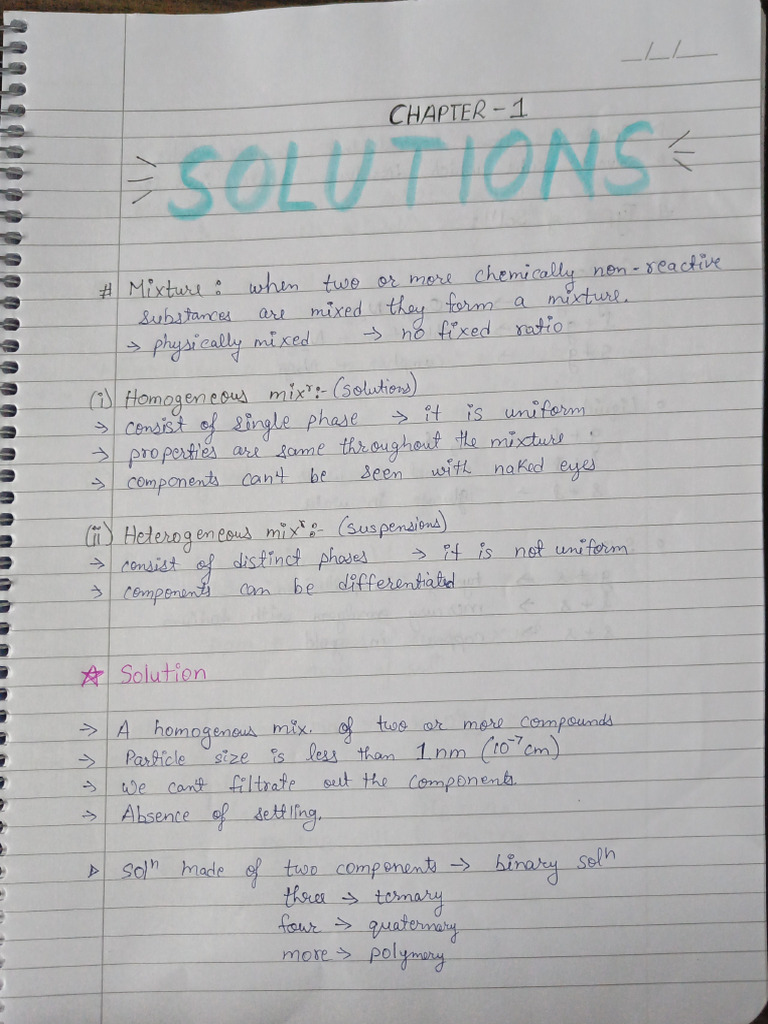 __/__/__
CHAPTER - 1
SOLUTIONS
# Mixture: when two or more chemically non-reactive
substances are mixed they form a mixture.
→ physically mixed → no fixed ratio
(i) Homogeneous mixʳ:- (solutions)
→ consist of single phase → it is uniform
→ properties are same throughout the mixture
→ components can't be seen with naked eyes
(ii) Heterogeneous mixʳ:- (suspensions)
→ consist of distinct phases → it is not uniform
→ components can be differentiated
☆ Solution
→ A homogenous mix. of two or more compounds
→ Particle size is less than 1 nm (10⁻⁷ cm)
→ we can't filtrate out the components.
→ Absence of settling.
▷ solⁿ made of two components → binary solⁿ
three → ternary
four → quaternary
more → polymery